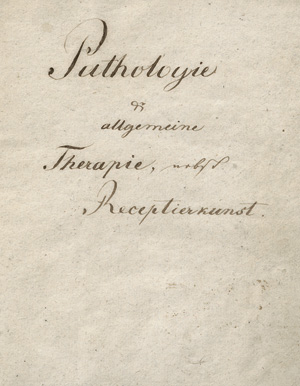 Pathologie
&
allgemeine
Therapie, nebst
Receptierkunst.